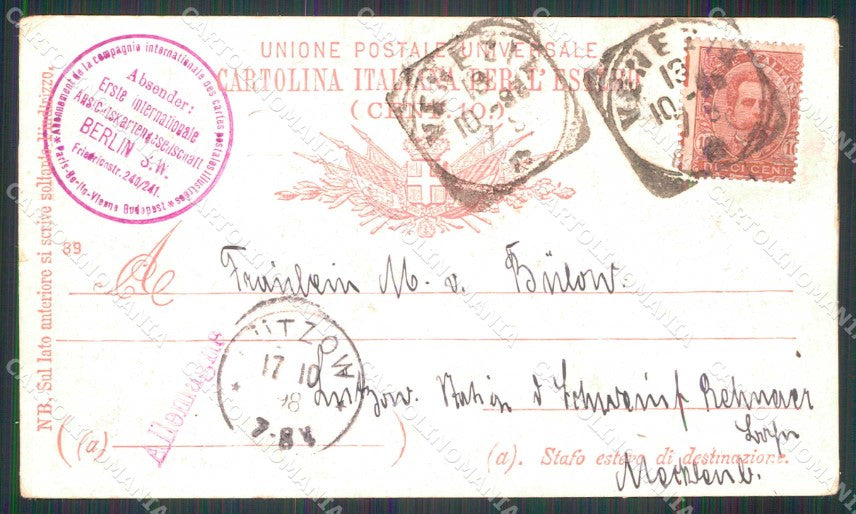 UNIONE POSTALE UNIVERSALE
CARTOLINA ITALIANA PER L'ESTERO
(CENT. 10.)
Abonnement de la compagnie internationale des cartes postales illustrées
Paris-Berlin-Vienne Budapest
Absender:
Erste internationale
Ansichtskartengesellschaft
BERLIN S.W.
Friedrichstr. 240/241.
VENEZIA
13
10-98
VENEZIA
13
10-98
DIECI CENT
NB. Sul lato anteriore si scrive soltanto l'indirizzo.
39
A
Fräulein M. v. Bülow.
LÜTZOW
17 10
98
7-8 V
Allemagne
Lützow. Station d Schwerin Rehnaer
Mecklenb.
(a)
(a). Stato estero di destinazione.
CARTOLINOMANIA